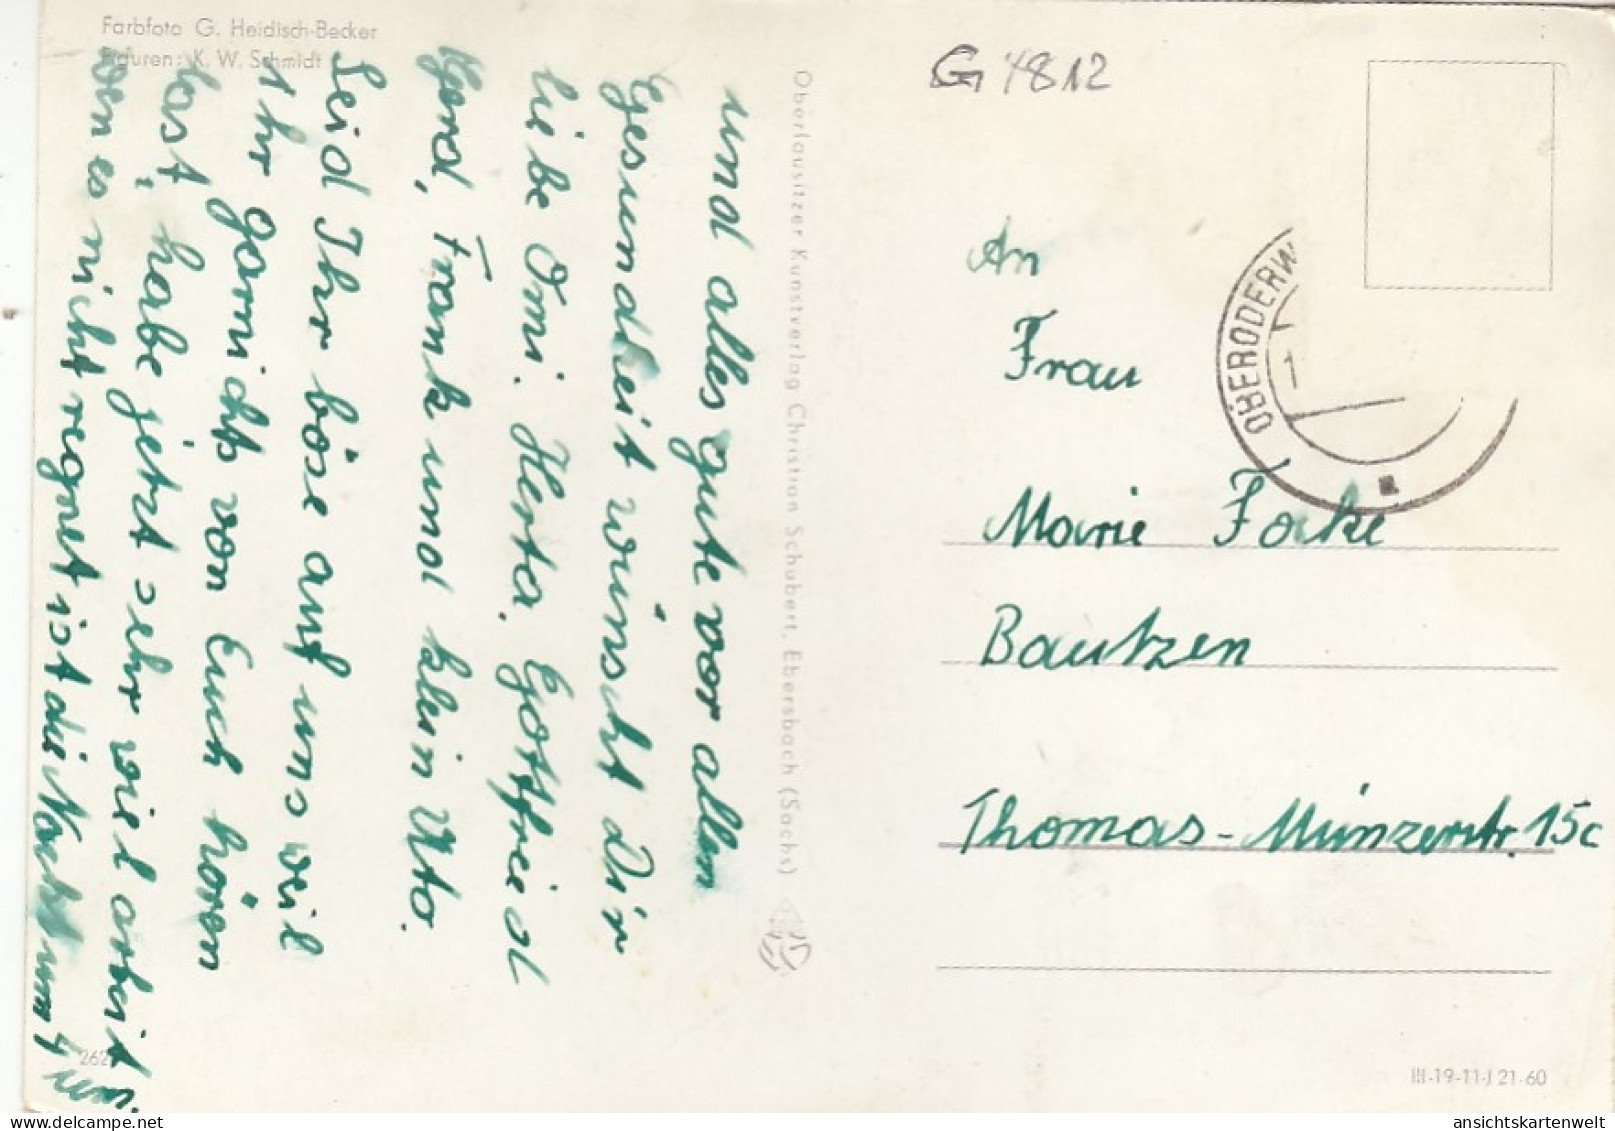 Farbfoto G. Heidisch-Becker
Figuren: K. W. Schmidt
G 4812
und alles gute vor allem
Gesundheit wünscht Dir
liebe Omi. Herta, Gottfried
Gerd, Frank und klein Uto.
Seid Ihr böse auf uns weil
Ihr garnichts von Euch hören
last, habe jetzt sehr viel arbeit
wen es nicht regnet ist die Nacht um 4
Oberlausitzer Kunstverlag Christian Schubert, Ebersbach (Sachs)
OBERODERW
1
An
Frau
Marie Focke
Bautzen
Thomas-Münzerstr. 15c
262
III-19-11-J 21-60
ansichtskartenwelt